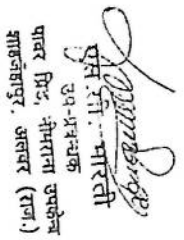 एम. सी. भारती
उप-प्रबन्धक
पावर ग्रिड, नीमराना उपकेन्द्र
शाहजहांपुर, अलवर (राज.)